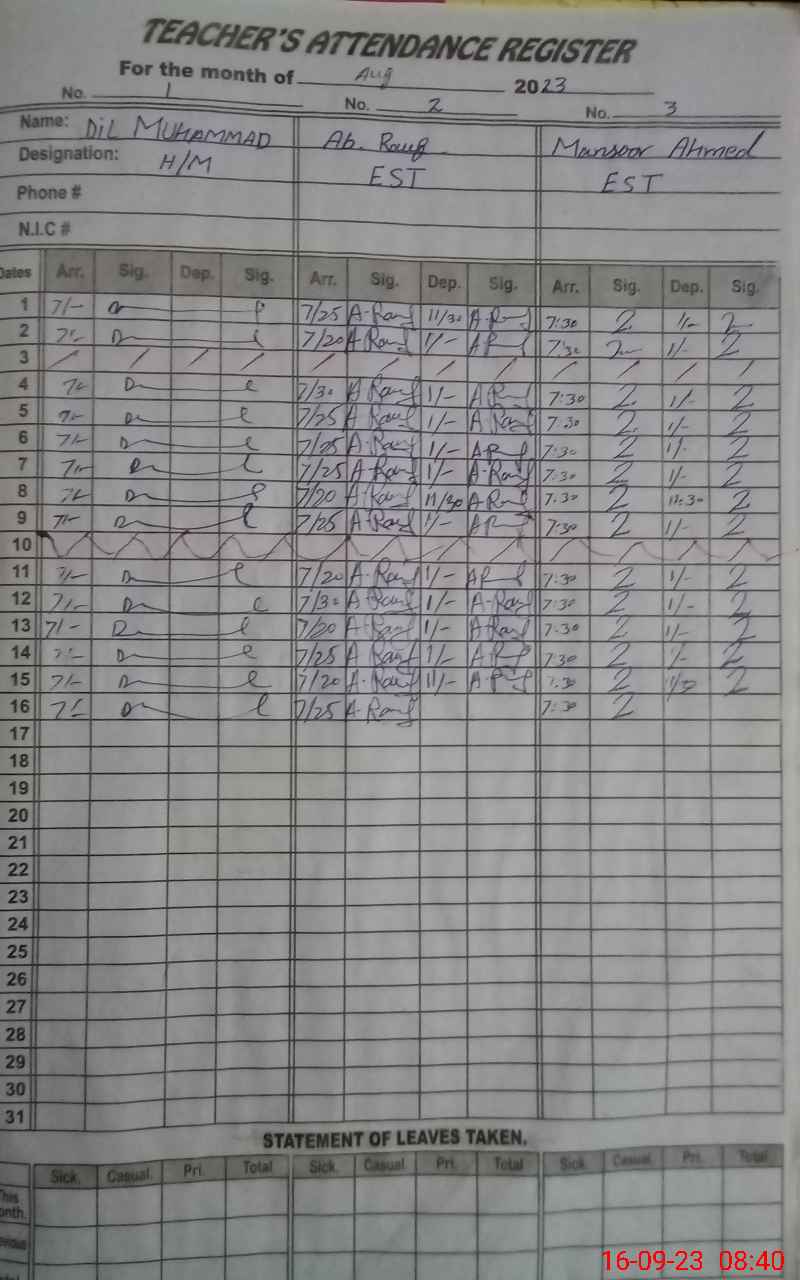 TEACHER'S ATTENDANCE REGISTER
For the month of Aug 2023
No. 1 No. 2 No. 3
Name: DIL MUHAMMAD Ab. Rauf Mansoor Ahmed
Designation: H/M EST EST
Phone #
N.I.C #
Dates Arr. Sig. Dep. Sig. Arr. Sig. Dep. Sig. Arr. Sig. Dep. Sig.
1 7/- 7/25 A-Rauf 11/30 A-Rauf 7:30 1/-
2 7/20 A-Rauf 1/- 7:30 1/-
3 / / / / / / / / / / / /
4 7/30 A-Rauf 1/- 7:30 1/-
5 7/25 A-Rauf 1/- A-Rauf 7:30 1/-
6 7/- 7/25 A-Rauf 1/- 7:30 1/-
7 7/25 A-Rauf 1/- A-Rauf 7:30 1/-
8 7/20 A-Rauf 11/30 7:30 11:30
9 7/- 7/25 A-Rauf 1/- 7:30 1/-
10
11 7/- 7/20 A-Rauf 1/- 7:30 1/-
12 7/- 7/30 A-Rauf 1/- A-Rauf 7:30 1/-
13 7/- 7/20 A-Rauf 1/- A-Rauf 7:30 1/-
14 7/- 7/25 A-Rauf 1/- 7:30
15 7/- 7/20 A-Rauf 11/- 7:30
16 7/25 A-Rauf 7:30
17
18
19
20
21
22
23
24
25
26
27
28
29
30
31
STATEMENT OF LEAVES TAKEN.
Sick. Casual. Pri. Total Sick. Casual. Pri. Total Sick. Casual. Pri. Total
This
onth.
16-09-23 08:40